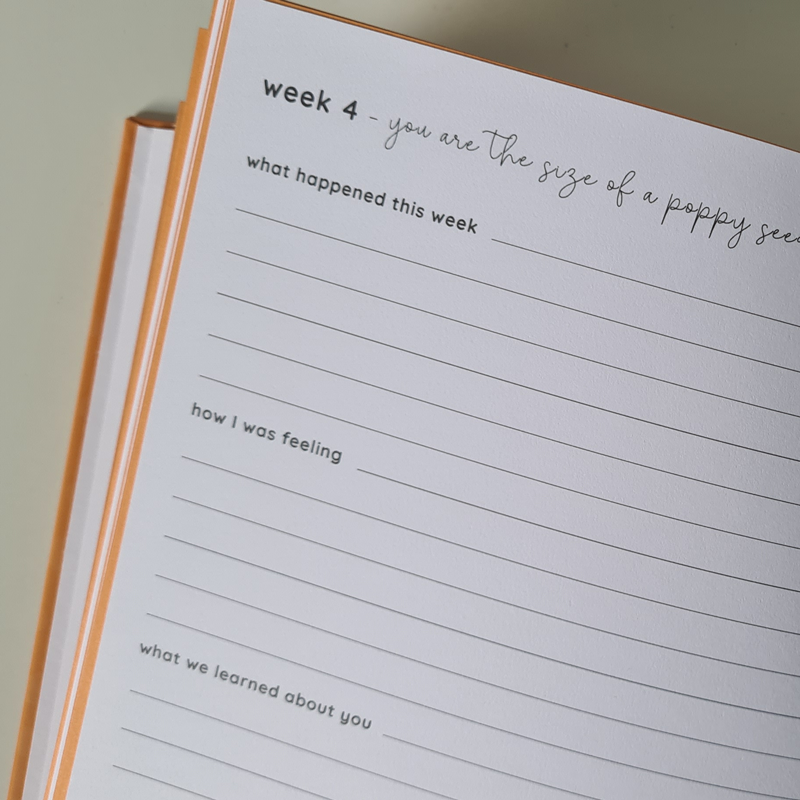 week 4 - you are the size of a poppy
what happened this week
how I was feeling
what we learned about you